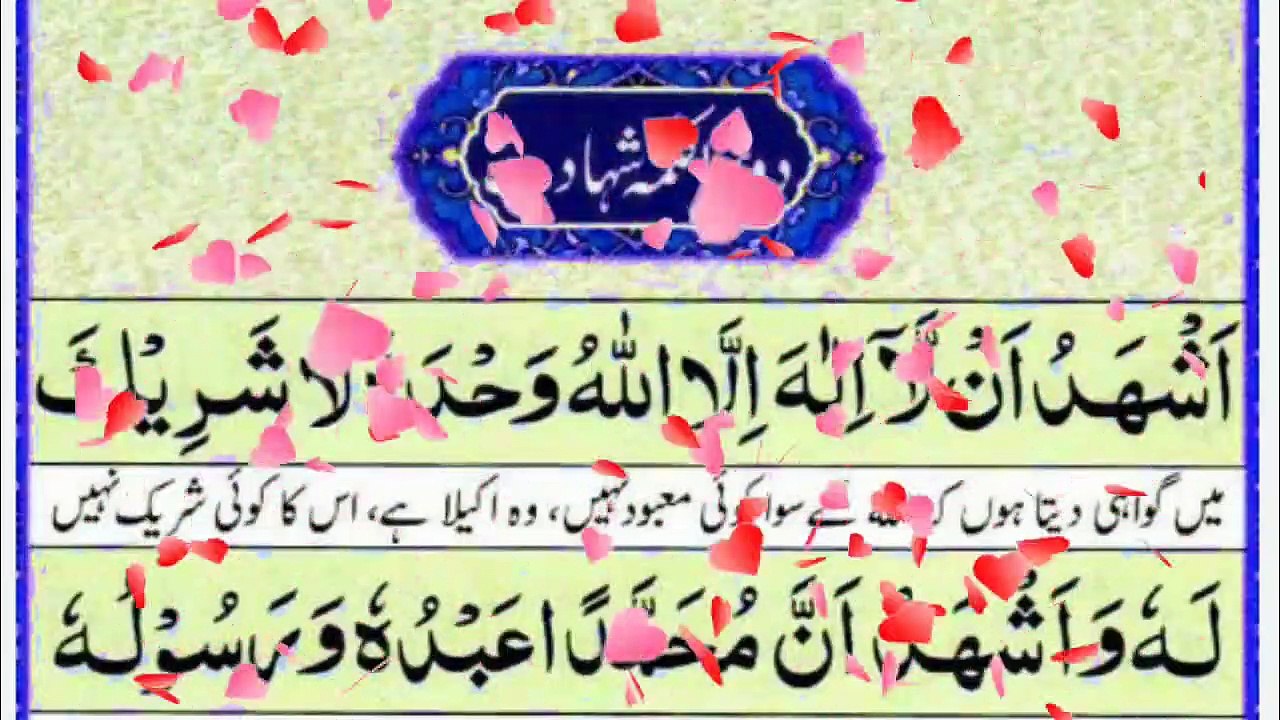 دوسرا کلمہ شہادت
اَشْهَدُ اَنْ لَّآ اِلٰهَ اِلَّا اللّٰهُ وَحْدَهٗ لَا شَرِيْكَ
میں گواہی دیتا ہوں کہ اللہ کے سوا کوئی معبود نہیں، وہ اکیلا ہے، اس کا کوئی شریک نہیں
لَهٗ وَاَشْهَدُ اَنَّ مُحَمَّدًا عَبْدُهٗ وَرَسُوْلُهٗ